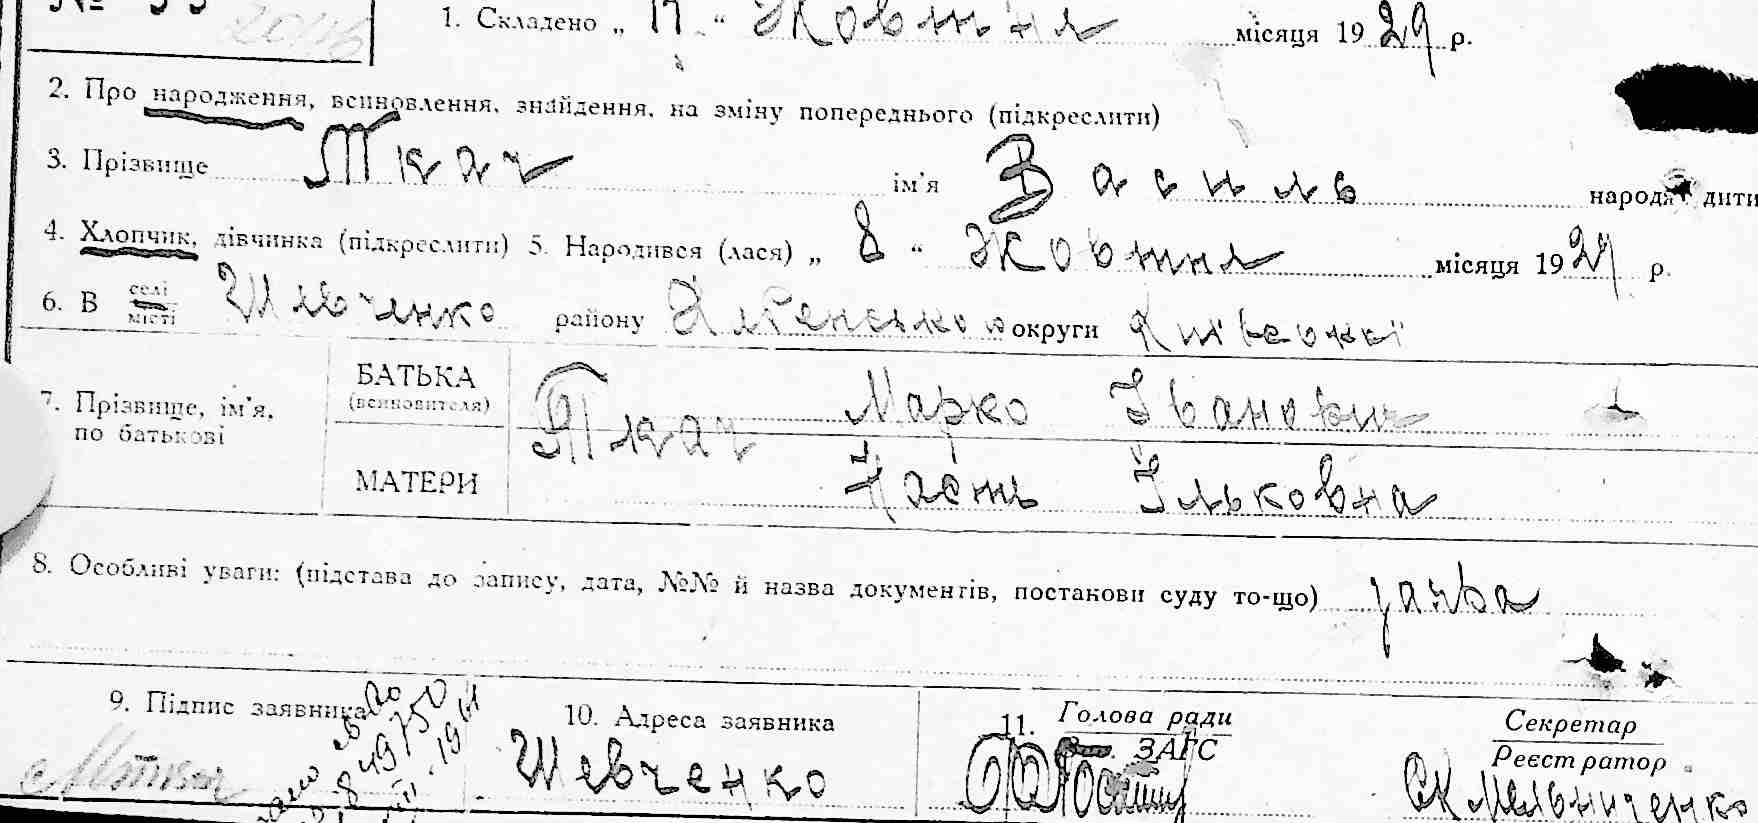 № 55
1. Складено „ 11 “ Жовтня місяця 1929 р.
2. Про народження, всиновлення, знайдення, на зміну попереднього (підкреслити)
3. Прізвище Ткач ім'я Василь народж дити
4. Хлопчик, дівчинка (підкреслити) 5. Народився (лася) „ 8 “ Жовтня місяця 1929 р.
6. В селі місті Шевченко району округи Київської
7. Прізвище, ім'я, по батькові
БАТЬКА (всиновителя) Ткач Марко Іванович
МАТЕРИ Настя Ільковна
8. Особливі уваги: (підстава до запису, дата, №№ й назва документів, постанови суду то-що) заява
9. Підпис заявника
10. Адреса заявника
Шевченко
11. Голова ради
ЗАГС
Секретар
Реєстратор
Мельниченко